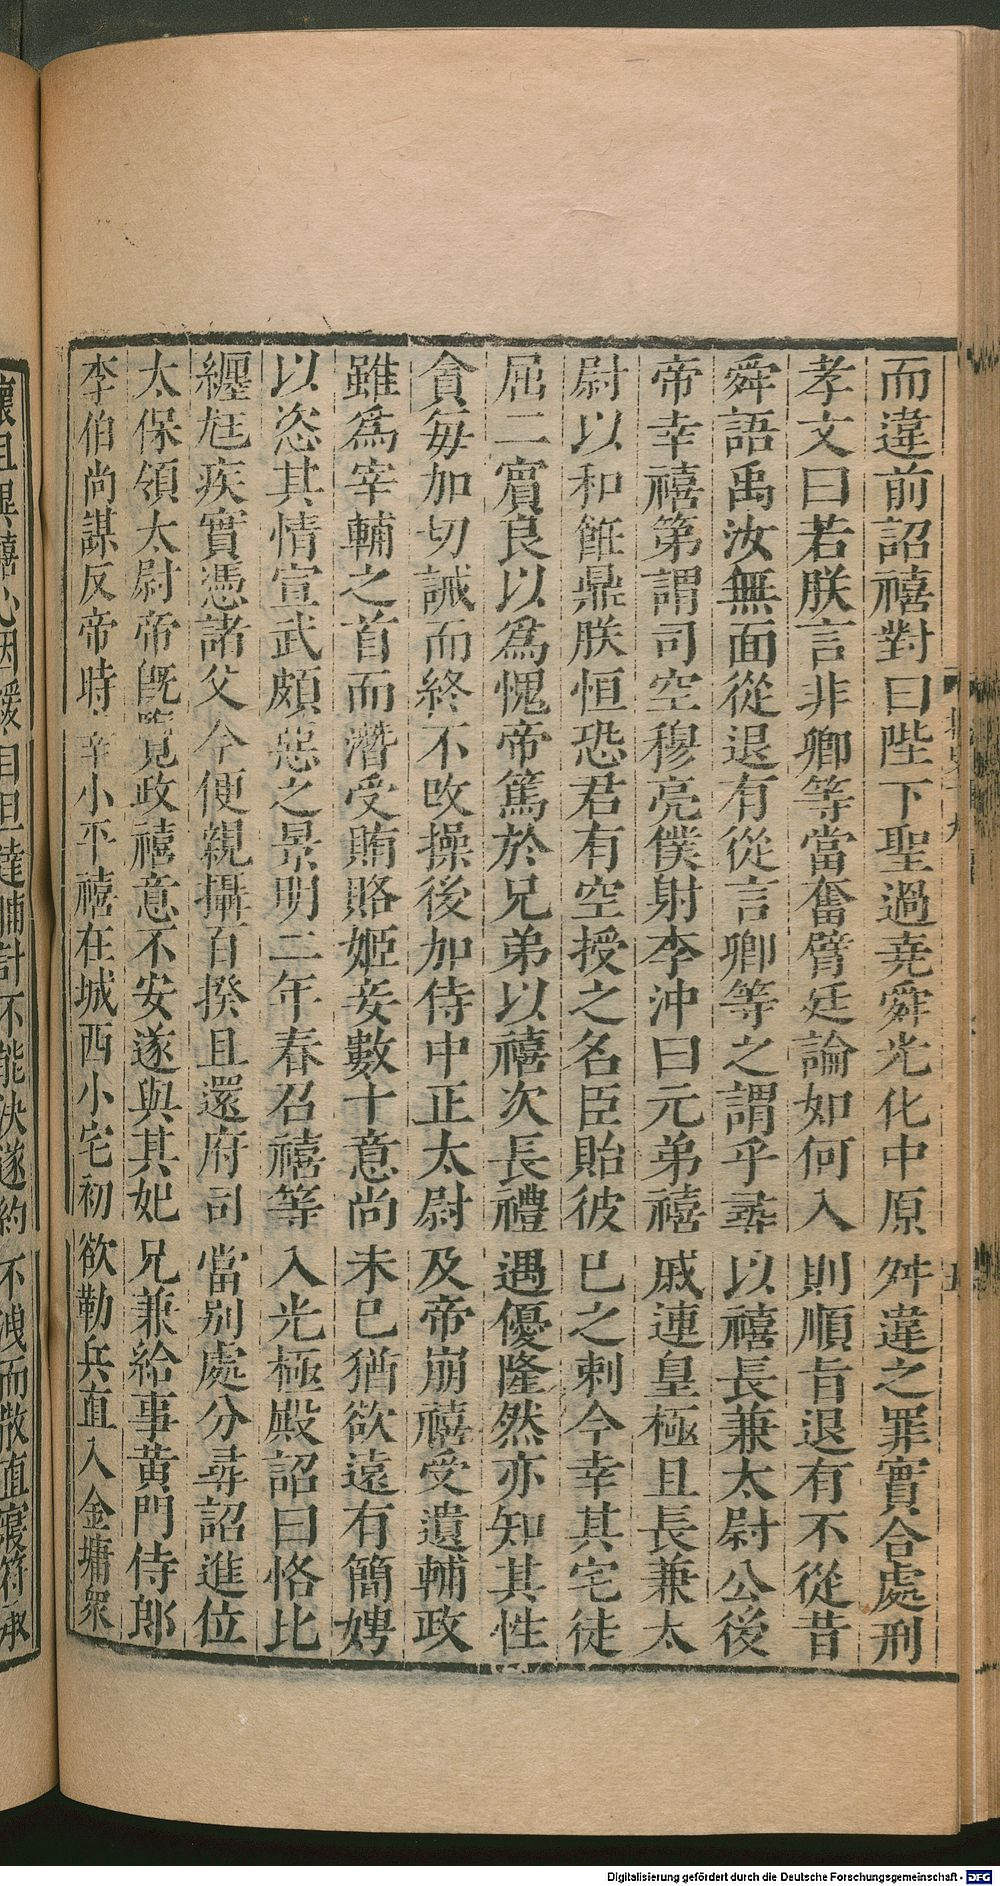 而違前詔禧對曰陛下聖過堯舜光化中原舛違之罪實合處刑
孝文曰若朕言非卿等當奮臂廷論如何入則順旨退有不從昔
舜語禹汝無面從退有從言卿等之謂乎尋以禧長兼太尉公後
帝幸禧第謂司空穆亮僕射李沖曰元弟禧戚連皇極且長兼太
尉以和飪鼎朕恒恐君有空授之名臣貽彼已之刺今幸其宅徒
屈二賓良以爲愧帝篤於兄弟以禧次長禮遇優隆然亦知其性
貪每加切誡而終不改操後加侍中正太尉及帝崩禧受遺輔政
雖爲宰輔之首而潛受賄賂姬妾數十意尚未已猶欲遠有簡娉
以恣其情宣武頗惡之景明二年春召禧等入光極殿詔曰恪比
纏尫疾實憑諸父今便親攝百揆且還府司當别處分尋詔進位
太保領太尉帝旣覽政禧意不安遂與其妃兄兼給事黃門侍郎
李伯尚謀反帝時幸小平禧在城西小宅初欲勒兵直入金墉衆
計不能決遂約不洩而散直寢符承
Digitalisierung gefördert durch die Deutsche Forschungsgemeinschaft - DFG